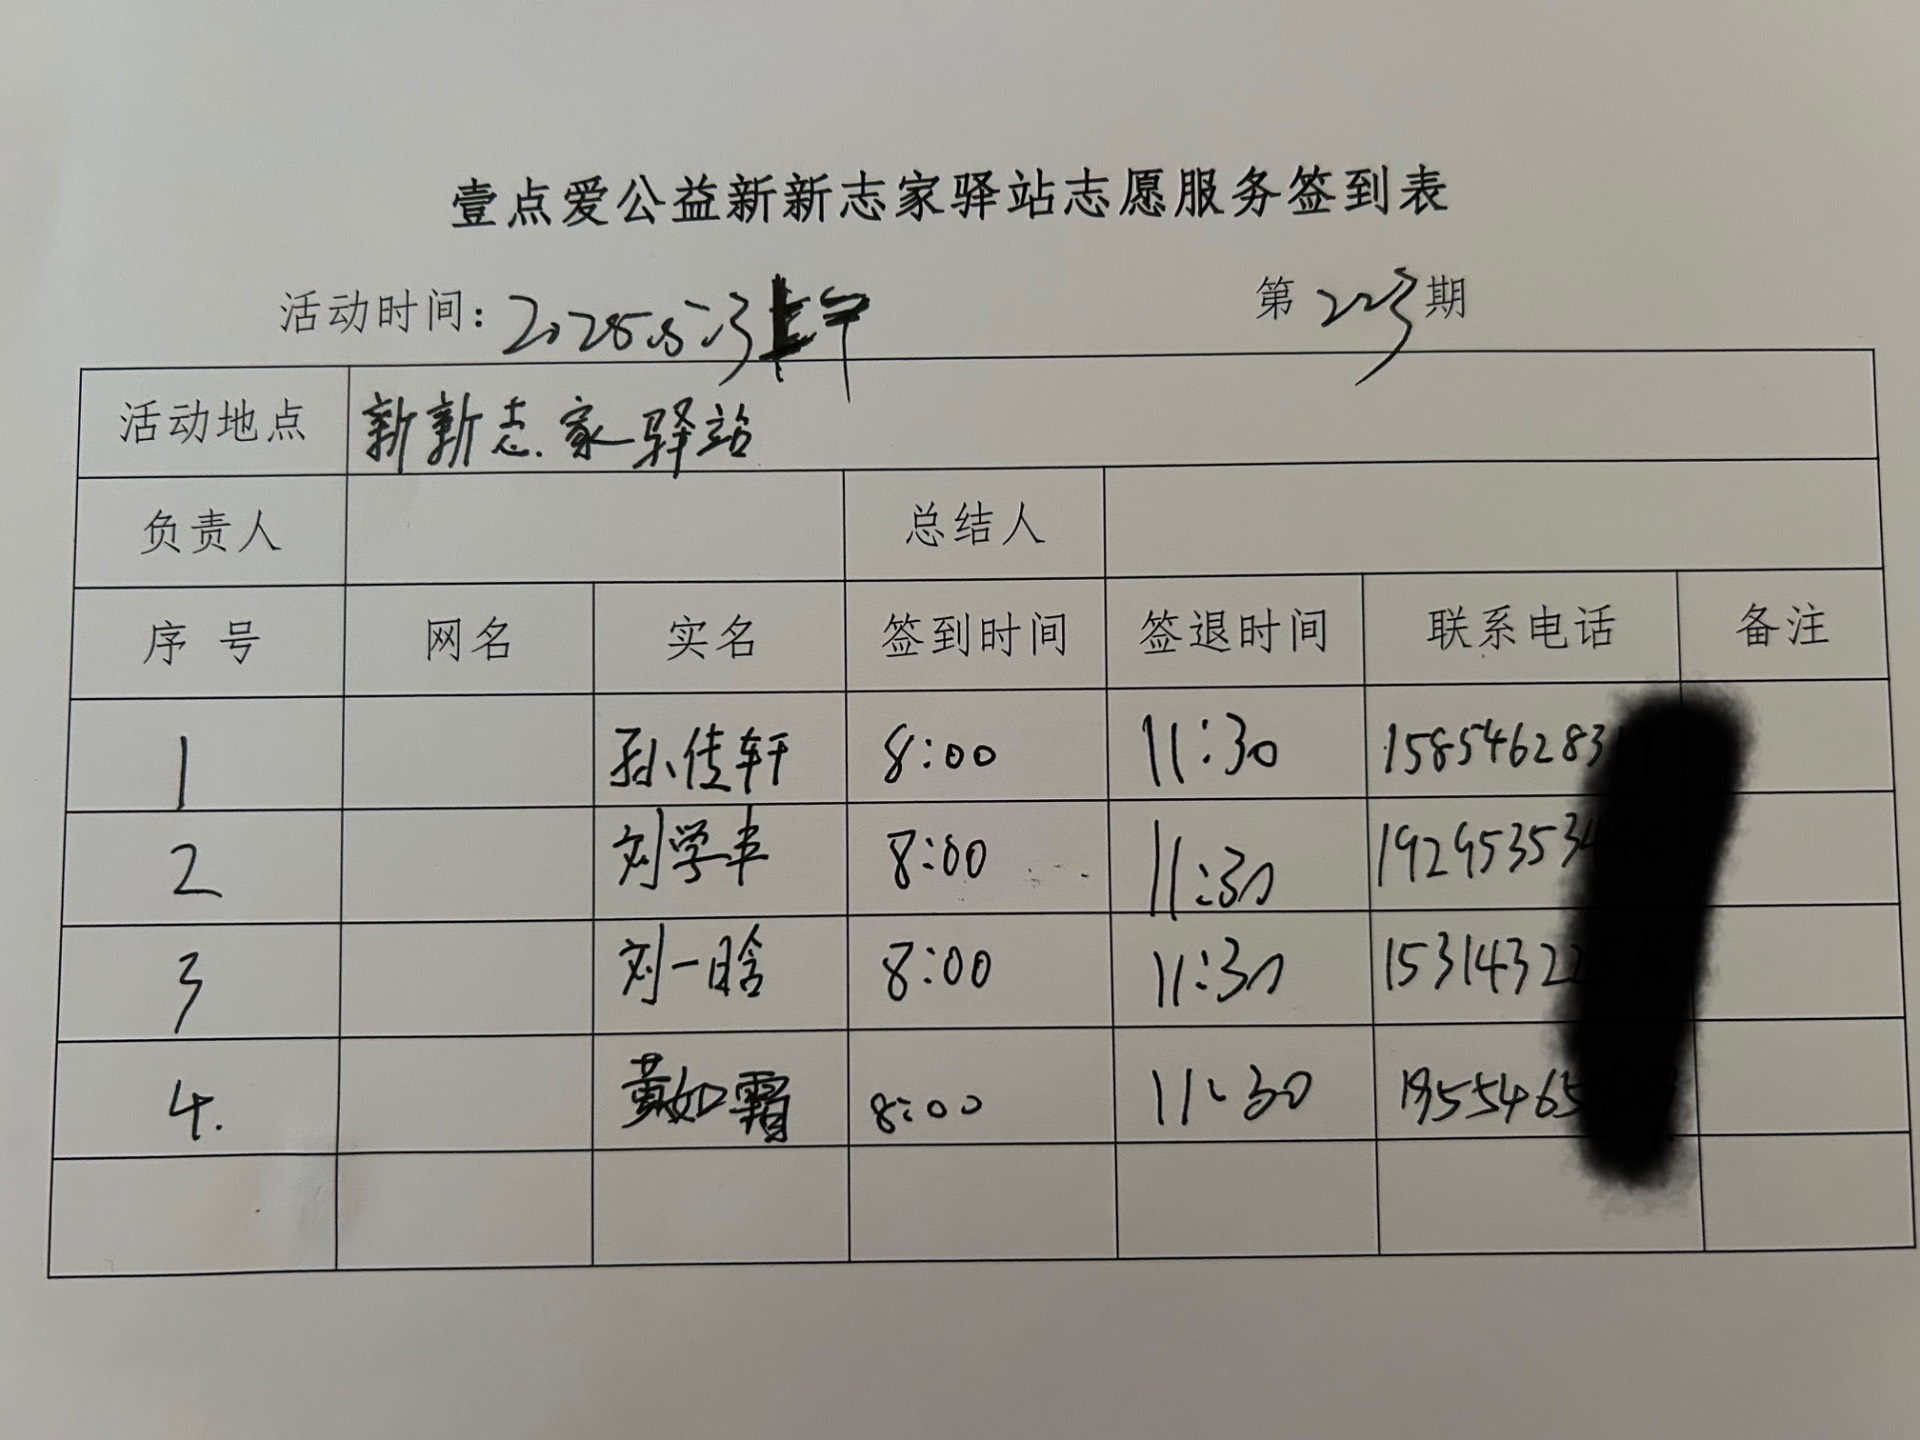 壹点爱公益新新志家驿站志愿服务签到表
活动时间：2025.5.3上午 第223期
活动地点 新新志家驿站
负责人 总结人
序号 网名 实名 签到时间 签退时间 联系电话 备注
1 孙佳轩 8:00 11:30 158546283
2 刘学丰 8:00 11:30 192953534
3 刘一晗 8:00 11:30 15314322
4. 黄如霜 8:00 11:30 1955465